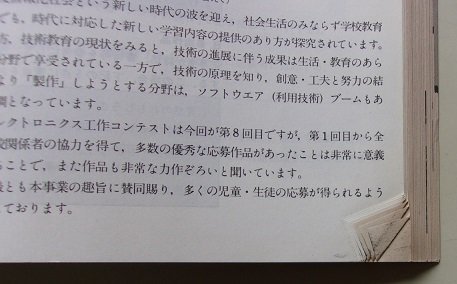 報化社会という新しい時代の波を迎え，社会生活のみならず学校教育
でも，時代に対応した新しい学習内容の提供のあり方が探究されています。
方，技術教育の現状をみると，技術の進展に伴う成果は生活・教育のあら
分野で享受されている一方で，技術の原理を知り，創意・工夫と努力の結
なり「製作」しようとする分野は，ソフトウエア（利用技術）ブームもあ
となっています。
レクトロニクス工作コンテストは今回が第８回目ですが，第１回目から全
校関係者の協力を得て，多数の優秀な応募作品があったことは非常に意義
ることで，また作品も非常な力作ぞろいと聞いています。
とも本事業の趣旨に賛同賜り，多くの児童・生徒の応募が得られるよう
ております。